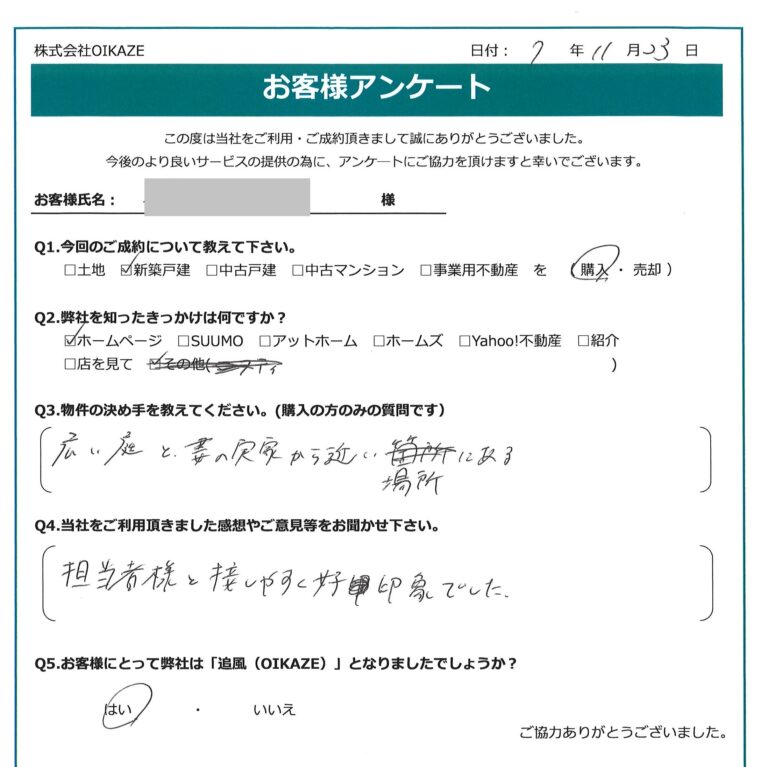 株式会社OIKAZE
日付： 7 年 11 月 23 日
お客様アンケート
この度は当社をご利用・ご成約頂きまして誠にありがとうございました。
今後のより良いサービスの提供の為に、アンケートにご協力を頂けますと幸いでございます。
お客様氏名： 様
Q1.今回のご成約について教えて下さい。
□土地 ☑新築戸建 □中古戸建 □中古マンション □事業用不動産 を （購入・売却）
Q2.弊社を知ったきっかけは何ですか？
☑ホームページ □SUUMO □アットホーム □ホームズ □Yahoo!不動産 □紹介
□店を見て ☑その他( )
Q3.物件の決め手を教えてください。(購入の方のみの質問です）
広い庭と、妻の実家から近い箇所にある
場所
Q4.当社をご利用頂きました感想やご意見等をお聞かせ下さい。
担当者様と接しやすく好印象でした。
Q5.お客様にとって弊社は「追風（OIKAZE）」となりましたでしょうか？
はい ・ いいえ
ご協力ありがとうございました。